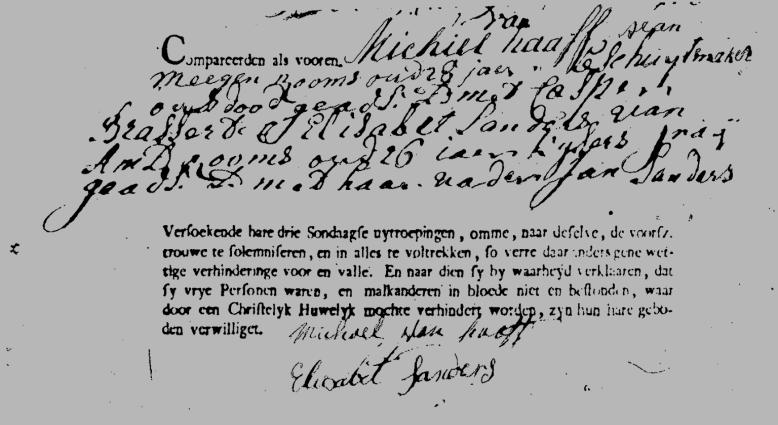 van
Compareerden als vooren Michiel haaff van
Meegen rooms oud 28 jaer schuytmaker
ouds dood geads. met Casper
Brasser & Elisabet Sanders van
Amst rooms oud 26 jaer
geads. met haar vader Jan Sanders
Versoekende hare drie Sondaagse uytroepingen, omme, naar deselve, de voorsz.
trouwe te solemniseren, en in alles te voltrekken, so verre daar anders gene wet-
tige verhinderinge voor en valle. En naar dien sy by waarheyd verklaaren, dat
sy vrye Personen waren, en malkanderen in bloede niet en bestonden, waar
door een Christelyk Huwelyk mochte verhindert worden, zyn hun hare gebo-
den verwilliget.
Michael van haaff
Elisabet Sanders